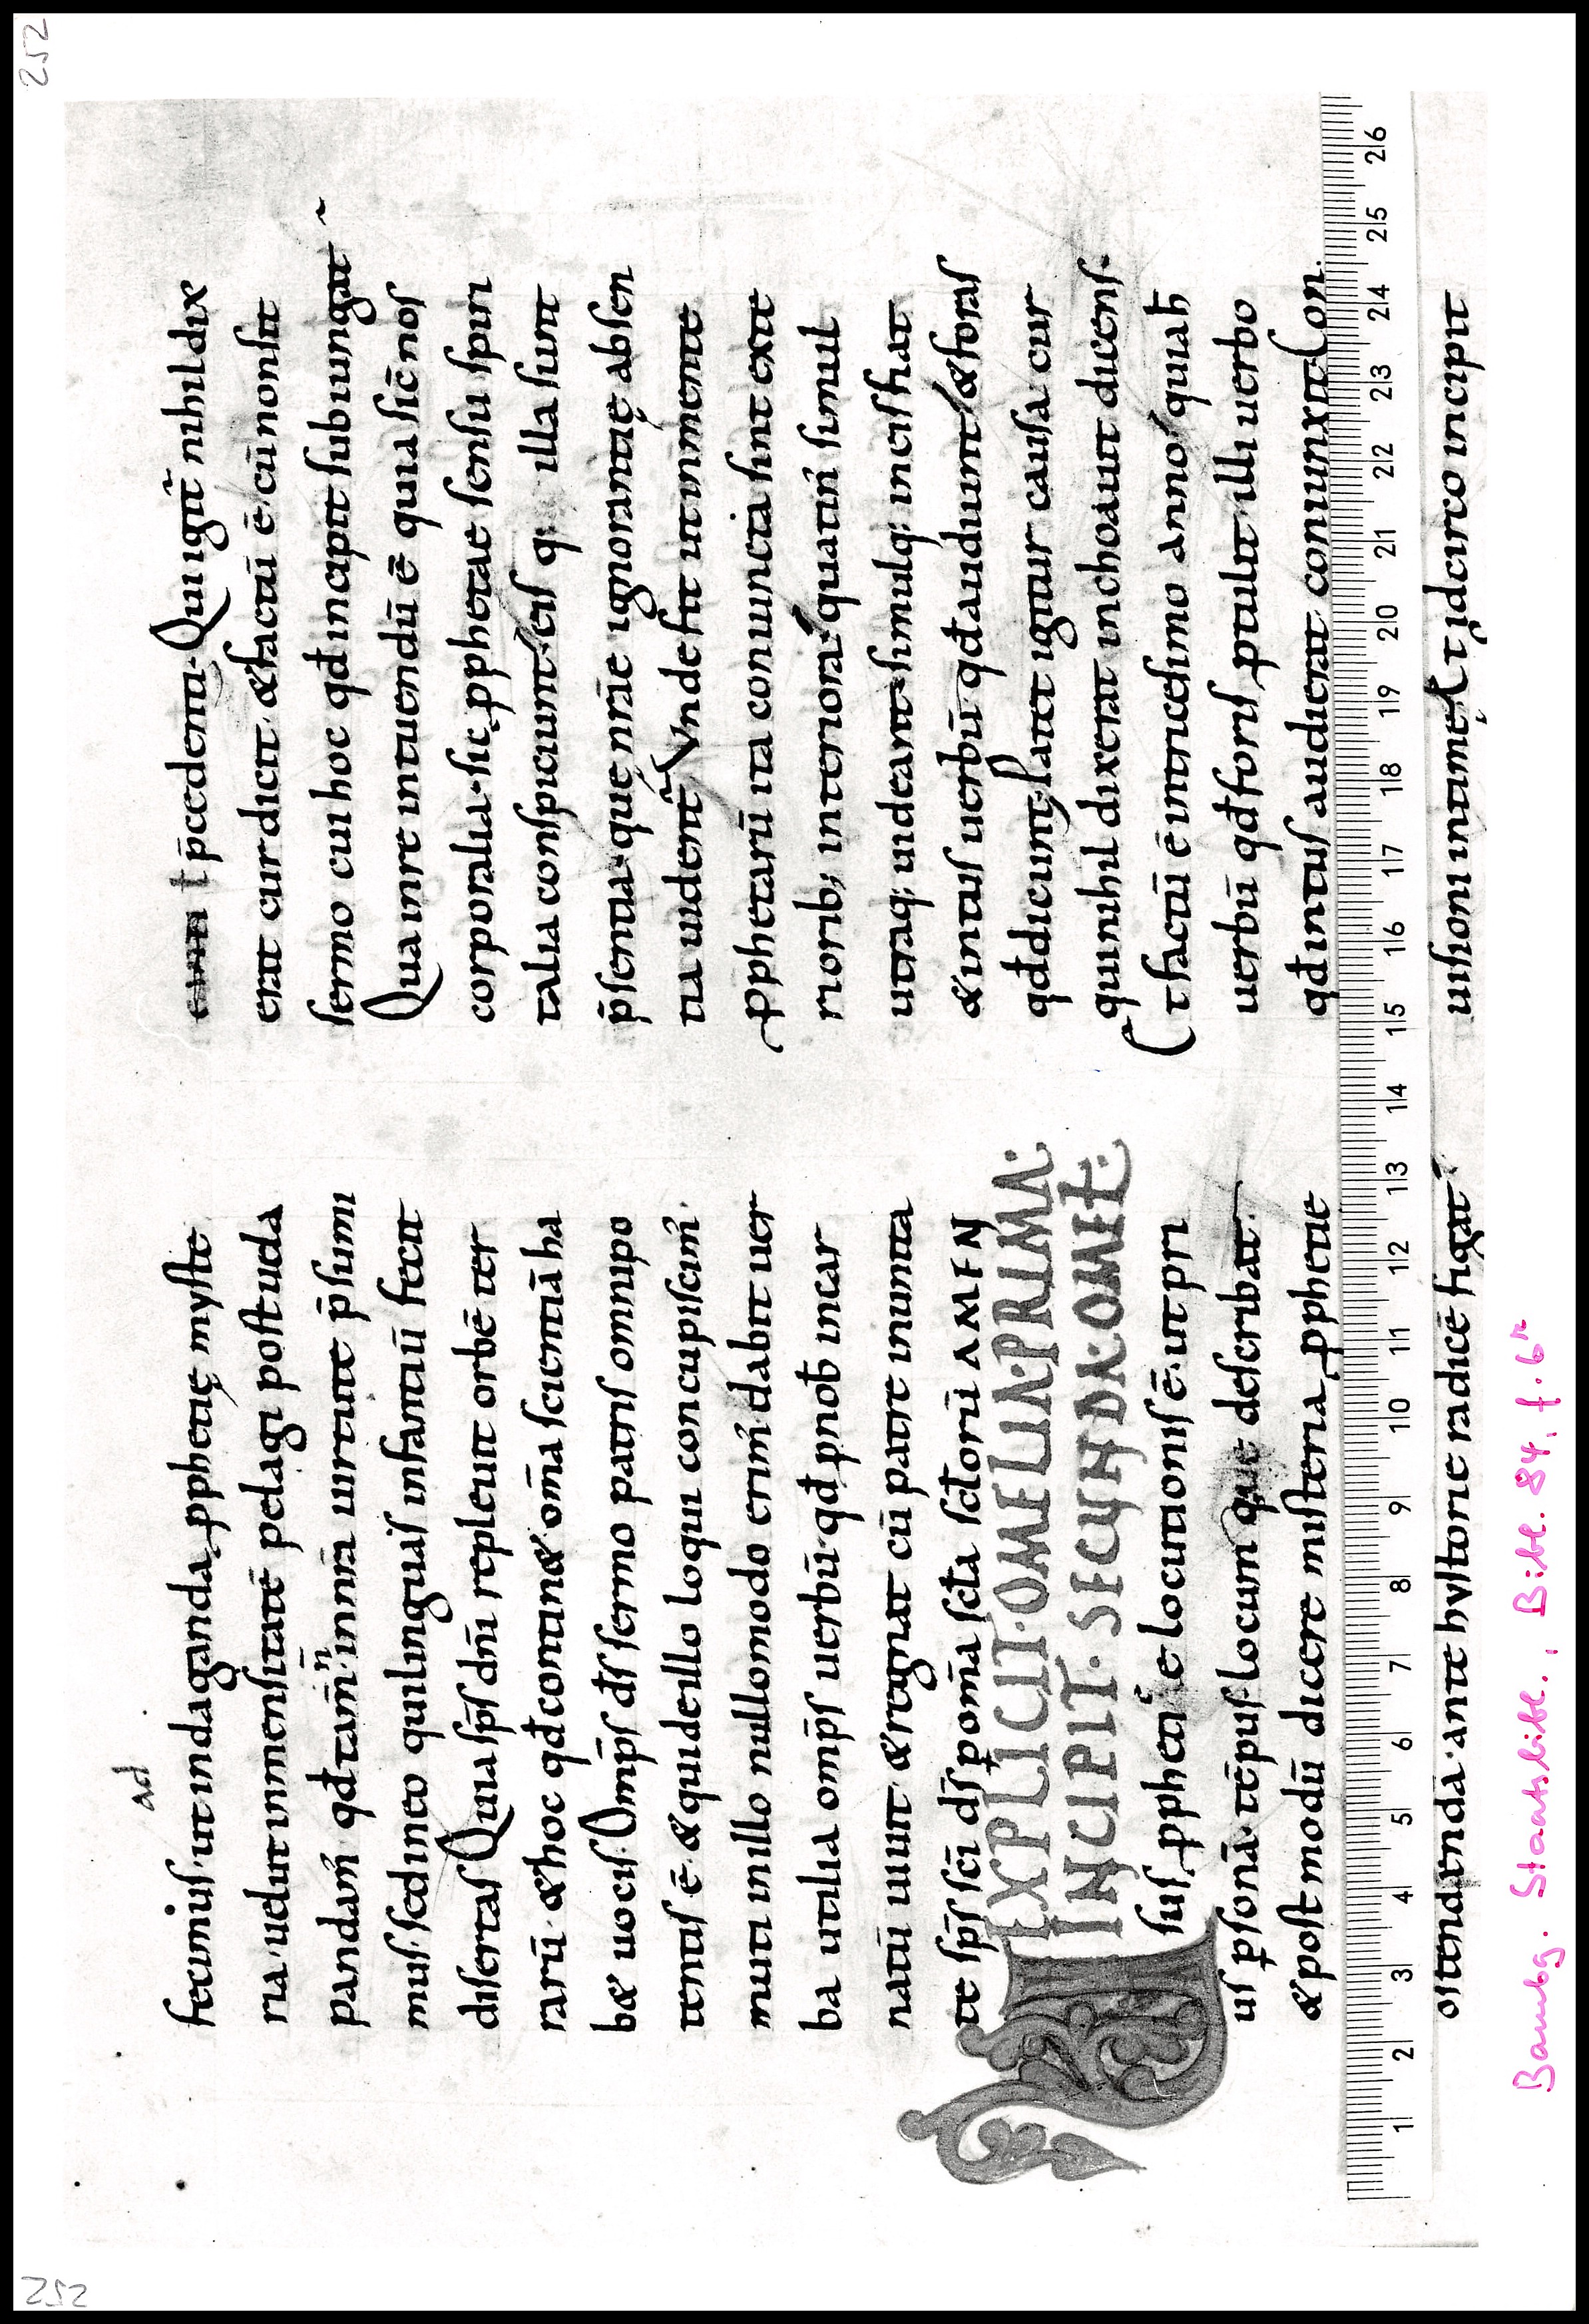 252
252
ad
fecimuſ · ut indaganda ꝓphetię myſte
ria · uelut inmenſitatē pelagi poſt uela
pandam̄ · qđ tam̄ · n̄ in nr̄a uirtute p̄ſumi
muſ · ſed in eo qui linguaſ infantiū fecit
diſertaſ Quia ſp̄ſ dn̄i repleuit orbē ter
rarū · & hoc qđ continet om̄ia ſcientiā ha
bet uociſ · Omp̄ſ dſ ſermo patriſ omnipo
tentiſ ē · & qui de illo loqui concupiſcim̄ ·
muti in illo nullomodo erim̄ · dabit uer
ba utilia omp̄ſ uerbū · qđ ꝓ nob̄ incar
natū uiuit & regnat cū patre in unita
te ſp̄ſ ſc̄i dſ ꝑ om̄a ſc̄ta ſc̄torū AMEN
EXPLICIT · OMELIA · PRIMA ·
INCIPIT · SECUNDA · OMEL ·
Uſuſ ꝓphetię locutioniſ ē · ut pri
uſ ꝑſonā · tēpuſ · locum que deſcribat ·
& poſtmodū dicere miſteria ꝓphetie
oſtendenda · ante hyſtorie radicē figat
p̄cedenti · Qui igit̄ nihil dix
erat cur dicit · & factū ē · cū non ſit
ſermo cui hoc qđ incipit ſubiungat
Qua in re intuendū ē quia ſic̄ noſ
corporalia · ſic ꝓphetae ſenſu ſpiri
talia conſpiciunt · eiſ q; illa ſunt
p̄ſentia · que nr̄ae ignorantię abſen
tia uident̄ Unde fit ut in mente
ꝓphetarū ita coniuncta ſint exte
riorib; interiora · quatin̄ ſimul
utraq; uideant · ſimulq; in eiſ fiat
& intuſ uerbū qđ audiunt · & foraſ
qđ dicunt · Patet igitur cauſa cur
qui nihil dixerat inchoauit dicenſ ·
Et factū ē in triceſimo anno / quia h̄
uerbū qđ foriſ ꝓtulit · illi uerbo
qđ intuſ audierat coniunxit · Con
uiſioni intime · & idcirco incipit
1 2 3 4 5 6 7 8 9 10 11 12 13 14 15 16 17 18 19 20 21 22 23 24 25 26
Bambg. Staatsbibl., Bibl. 84, f. 6r